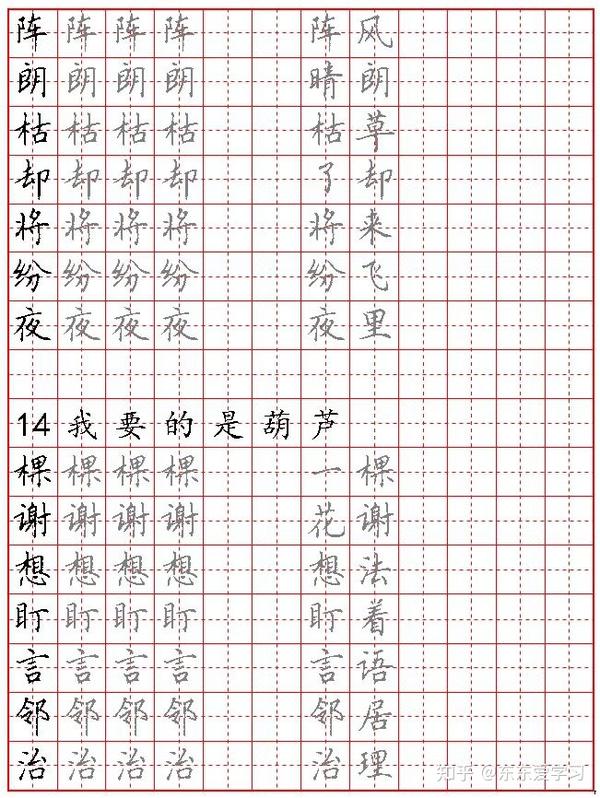 阵阵阵阵 阵风
朗朗朗朗 晴朗
枯枯枯枯 枯草
却却却却 了却
将将将将 将来
纷纷纷纷 纷飞
夜夜夜夜 夜里
14我要的是葫芦
棵棵棵棵 一棵
谢谢谢谢 花谢
想想想想 想法
盯盯盯盯 盯着
言言言言 言语
邻邻邻邻 邻居
治治治治 治理
知乎 @东东爱学习